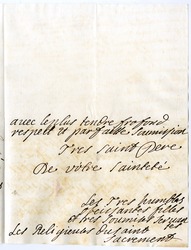 avec le plus tendre profond
respect et parfaitte Soumission
Tres saint Pere
De vôtre sainteté
Les tres humbles
obeissantes filles
et tres soumises servan
Les Religieuses du saint
Sacrement